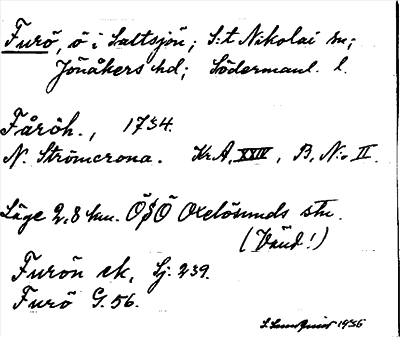 Furö, ö i Saltsjön; S:t Nikolai sn;
Jönåkers hd; Södermanl. l.
Fåröh., 1734.
N. Strömcrona. Kr.A. XXIV, B. N:o II.
Läge 2,8 km. ÖSÖ Oxelösunds stn.
(Vänd!)
Furön ek. Sj. 239.
Furö G. 56.
1936